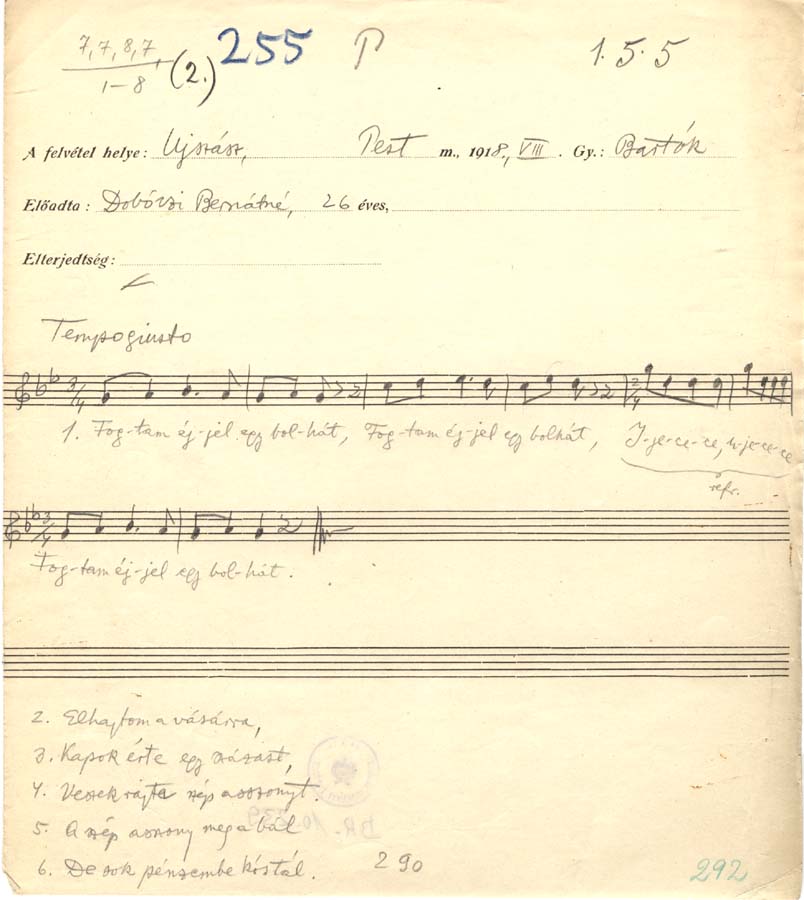 7, 7, 8, 7,
1–8
(2.) 255 P 1. 5. 5
A felvétel helye: Ujszász, Pest m., 1918, VIII. Gy.: Bartók
Előadta: Bernátné, 26 éves,
Elterjedtség:
Tempogiusto
1. Fog-tam éj-jel egy bol-hát, Fog-tam éj-jel egy bolhát, I-je-ce-ce, u-je-ce-ce
refr.
Fog-tam éj-jel egy bol-hát.
2. Elhajtom a vásárra,
3. Kapok érte egy százast,
4. Veszek rajta szép asszonyt.
5. A szép asszony meg a bál
6. De sok pénzembe kóstál.
290
292